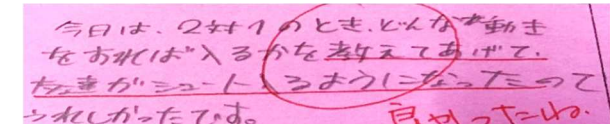 今日は、2対1のとき、どんな動き
をすれば入るかを教えてあげて、
友達がシュート入るようになったので
うれしかったです。
良かったね。